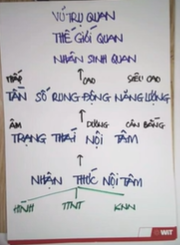 VŨ TRỤ QUAN
THẾ GIỚI QUAN
NHÂN SINH QUAN
THẤP CAO SIÊU CAO
TẦN SỐ RUNG ĐỘNG NĂNG LƯỢNG
ÂM DƯƠNG CÂN BẰNG
TRẠNG THÁI NỘI TÂM
NHẬN THỨC NỘI TÂM
HÌNH TTNT KNN
WIT